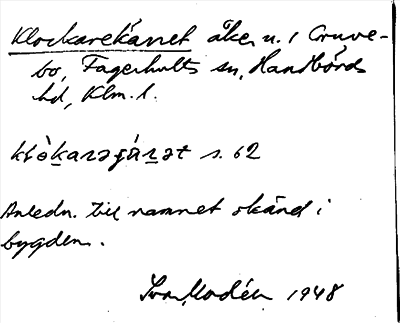 Klockarekärret åker n. 1 Gruve-
bo, Fagerhults sn, Handbörds
hd, Klm. l.
s. 62
Anledn. till namnet okänd i
bygden.
Ivar Modéer 1948